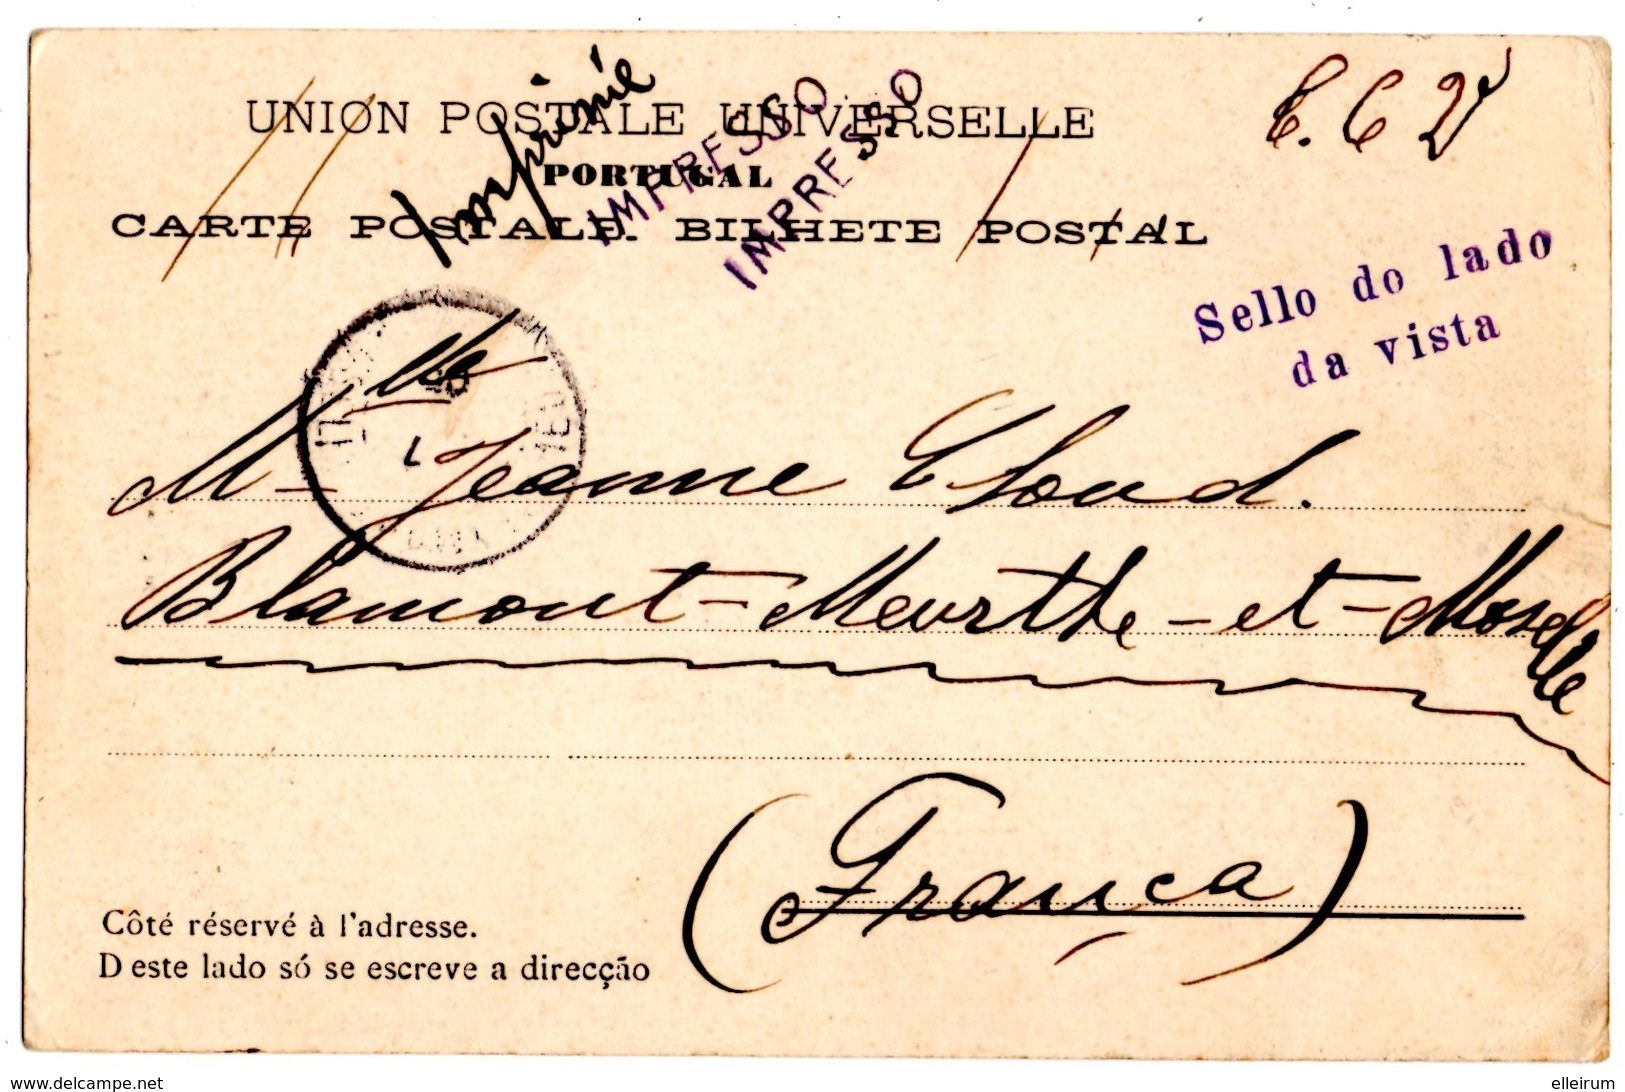 Imprimé
UNION POSTALE UNIVERSELLE
PORTUGAL
CARTE POSTALE. BILHETE POSTAL
IMPRESSO
IMPRESSO
T. C V
Sello do lado
da vista
Mlle Jeanne Cloud.
Blamont-Meurthe-et-Moselle
(França)
Côté réservé à l'adresse.
Deste lado só se escreve a direcção
www.delcampe.net
elleirum